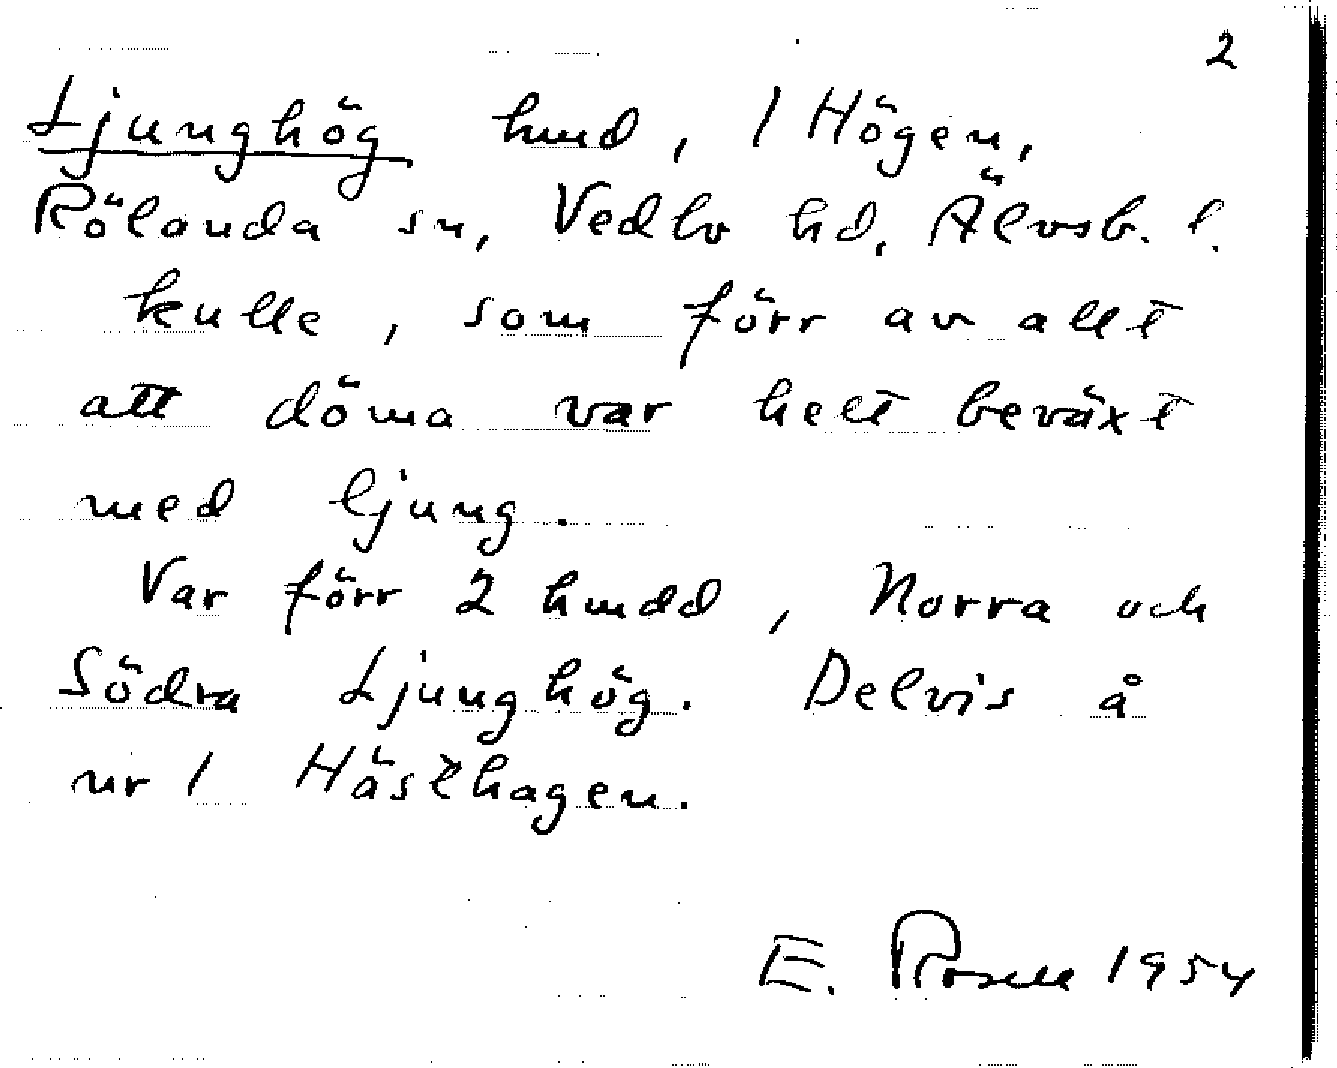 2
Ljunghög hmd, 1 Högen,
Rölanda sn, Vedbo hd, Älvsb. l.
kulle, som förr av allt
att döma var helt beväxt
med ljung.
Var förr 2 hmdd, Norra och
Södra Ljunghög. Delvis å
nr 1 Hästhagen.
E. Rosell 1954